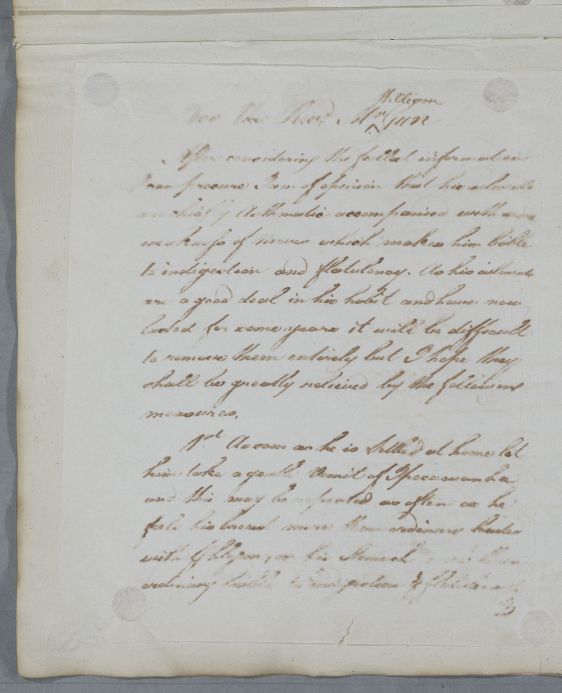 For the Revd. Mr. William Gun
After considering the fullest information
I can procure I am of opinion that his ailments
are chiefly Asthmatic accompanied with some
weakness of nerves which makes him liable
to indigestion and flatulency. As his ailments
are a good deal in his habit and have now
lasted for some years it will be difficult
to remove them entirely but I hope they
shall be greatly relieved by the following
measures.
1st. As soon as he is settled at home let
him take a gentle Vomit of Ipecacuanha
and this may be repeated as often as he
feels his breast more than ordinary loaded
with Phlegm or his Stomach more than
ordinary liable to Indigestion & flatulence